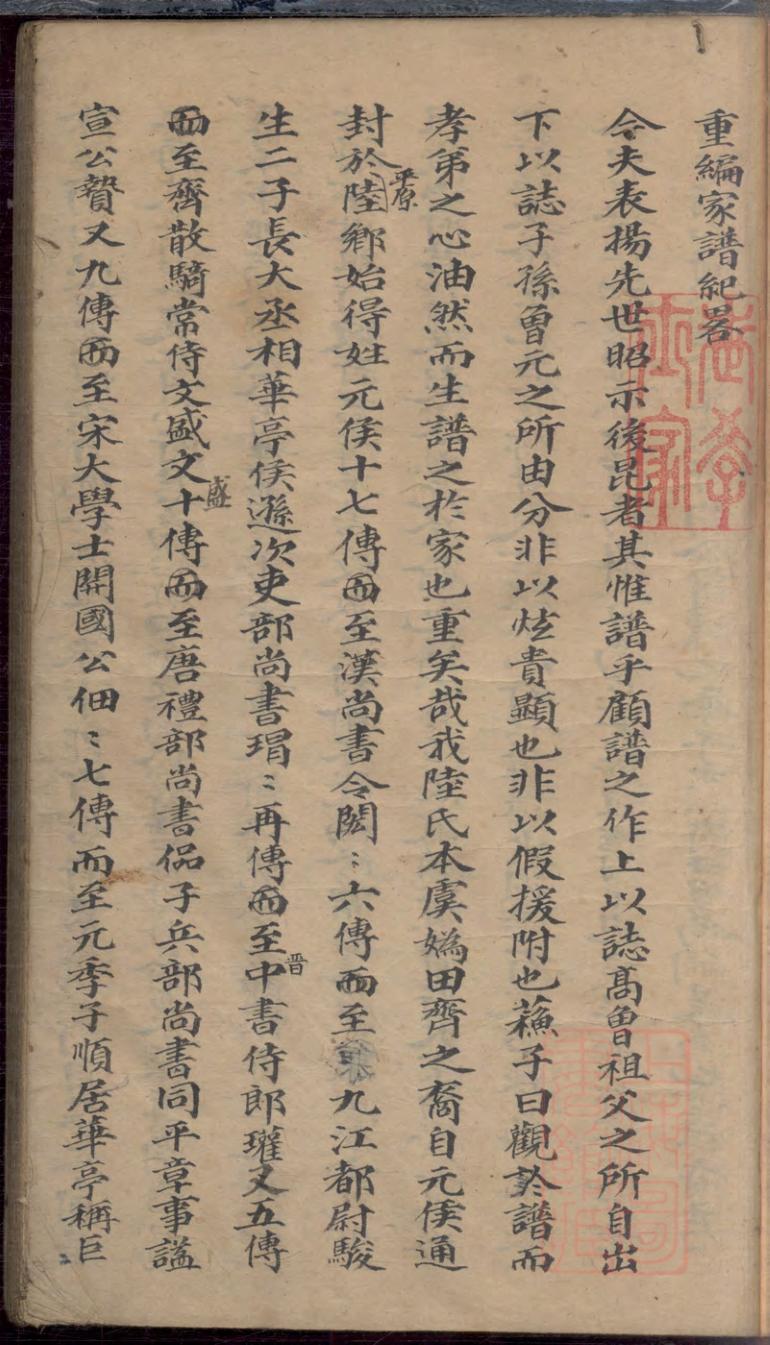 重編家譜紀畧
今夫表揚先世昭示後昆者其惟譜乎顧譜之作上以誌髙曾祖父之所自出
下以誌子孫曾元之所由分非以炫貴顯也非以假援附也蘓子曰觀於譜而
孝第之心油然而生譜之於家也重矣哉我陸氏本虞嬀田齊之裔自元侯通
封於平原陸鄉始得姓元侯十七傳而至漢尚書令閎〻六傳而至九江都尉駿
生二子長大丞相華亭侯遜次吏部尚書瑁〻再傳而至晋中書侍郎瓘又五傳
而至齊散騎常侍文盛文盛十傳而至唐禮部尚書侃子兵部尚書同平章事諡
宣公贄又九傳而至宋大學士開國公佃〻七傳而至元季子順居華亭稱巨